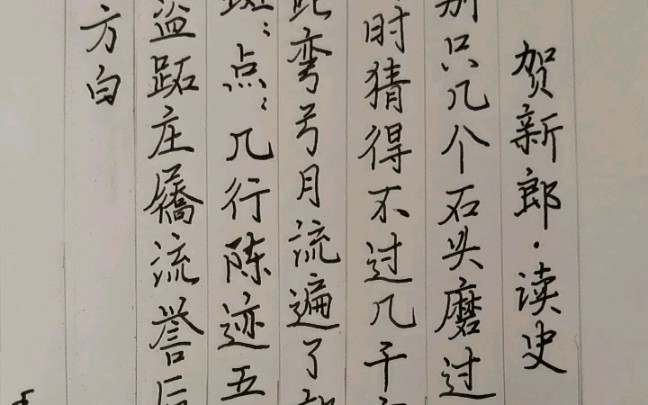 贺新郎·读史
别只几个石头磨过
时猜得不过几千
此弯弓月流遍了
斑〻点〻几行陈迹五
盗跖庄蹻流誉后
方白